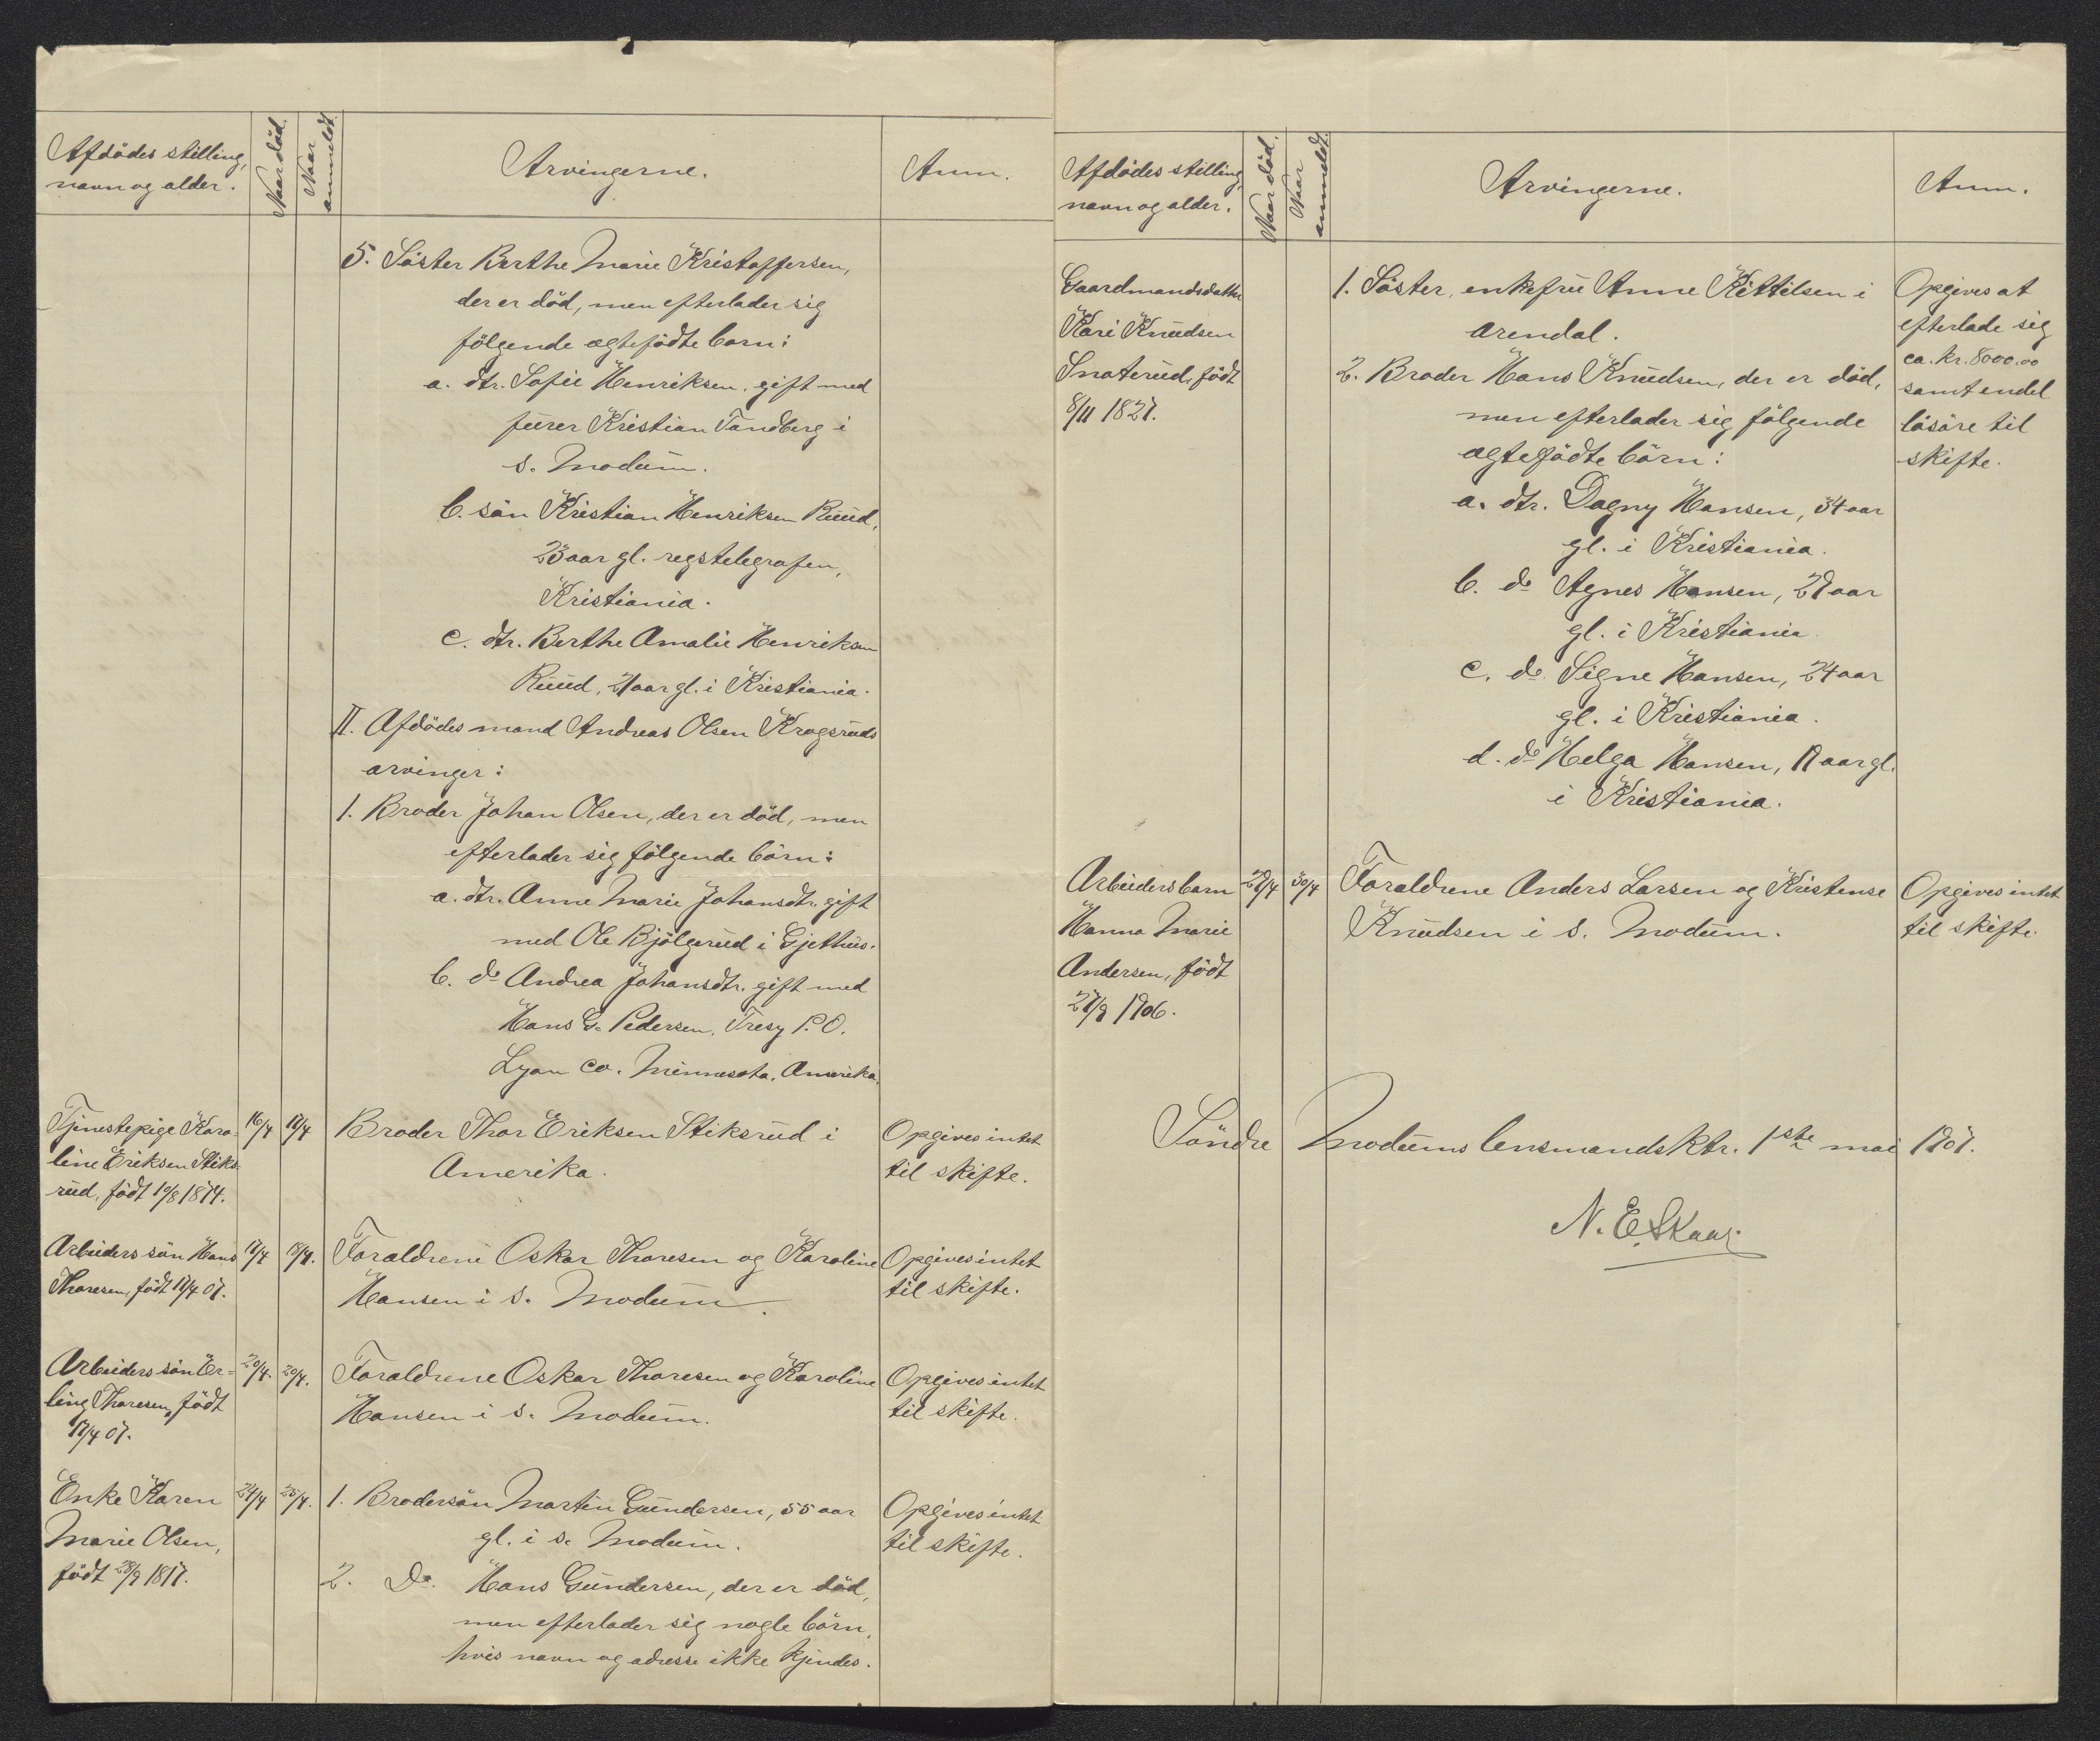 Afdödes stilling,
navn og alder.
Naar död.
Naar
anmeldt.
Arvingerne.
Anm.
5. Söster Berthe Marie Kristoffersen,
der er död, men efterlader sig
fölgende ægtefödte barn:
a. dtr. Sofie Henriksen, gift med
furer Kristian Tandberg i
s. Modum.
b. sön Kristian Henriksen Ruud,
23 aar gl. regstelegrafen,
Kristiania.
c. dtr. Berthe Amalie Henriksen
Ruud, 21 aar gl. i Kristiania.
II. Afdödes mand Andreas Olsen Krogsruds
arvinger:
1. Broder Johan Olsen, der er död, men
efterlader sig fölgende börn:
a. dtr. Anne Marie Johansdtr. gift
med Ole Bjölgerud i Gjethus.
b. do Andrea Johansdtr. gift med
Hans G. Pedersen, Tresy P.O.
Lyon Co. Minnesota, Amerika.
Tjenestepige Karo-
line Eriksen Stiks-
rud, födt 10/8 1874.
16/4
17/4
Broder Thor Eriksen Stiksrud i
Amerika.
Opgives intet
til skifte.
Arbeiders sön Hans
Thoresen, födt 17/4 07.
17/4
18/4.
Forældrene Oskar Thoresen og Karoline
Hansen i s. Modum.
Opgives intet
til skifte.
Arbeiders sön Er-
ling Thoresen, födt
17/4 07.
20/4.
20/4.
Forældrene Oskar Thoresen og Karoline
Hansen i s. Modum.
Opgives intet
til skifte.
Enke Karen
Marie Olsen,
födt 28/9 1817.
24/4
25/4.
1. Brodersön Martin Gundersen, 55 aar
gl. i s. Modum.
2. Do. Hans Gundersen, der er död,
men efterlader sig nogle börn,
hvis navn og adresse ikke kjendes.
Opgives intet
til skifte.
Afdödes stilling,
navn og alder.
Naar död.
Naar
anmeldt.
Arvingerne.
Anm.
Gaardmandsdatter
Kari Knudsen
Snoterud, födt
8/11 1827.
1. Söster, enkefru Anne Kittilsen i
Arendal.
2. Broder Hans Knudsen, der er död,
men efterlader sig fölgende
ægtefödte börn:
a. dtr. Dagny Hansen, 34 aar
gl. i Kristiania.
b. do Agnes Hansen, 27 aar
gl. i Kristiania.
c. do Signe Hansen, 24 aar
gl. i Kristiania.
d. do Helga Hansen, 17 aar gl.
i Kristiania.
Opgives at
efterlade sig
ca. kr. 8000.00
samt endel
lösöre til
skifte.
Arbeidersbarn
Hanna Marie
Andersen, födt
27/9 1906.
29/4
30/4
Forældrene Anders Larsen og Kristense
Knudsen i s. Modum.
Opgives intet
til skifte.
Söndre Modums lensmandsktr. 1ste mai 1907.
N. E. Skaar.